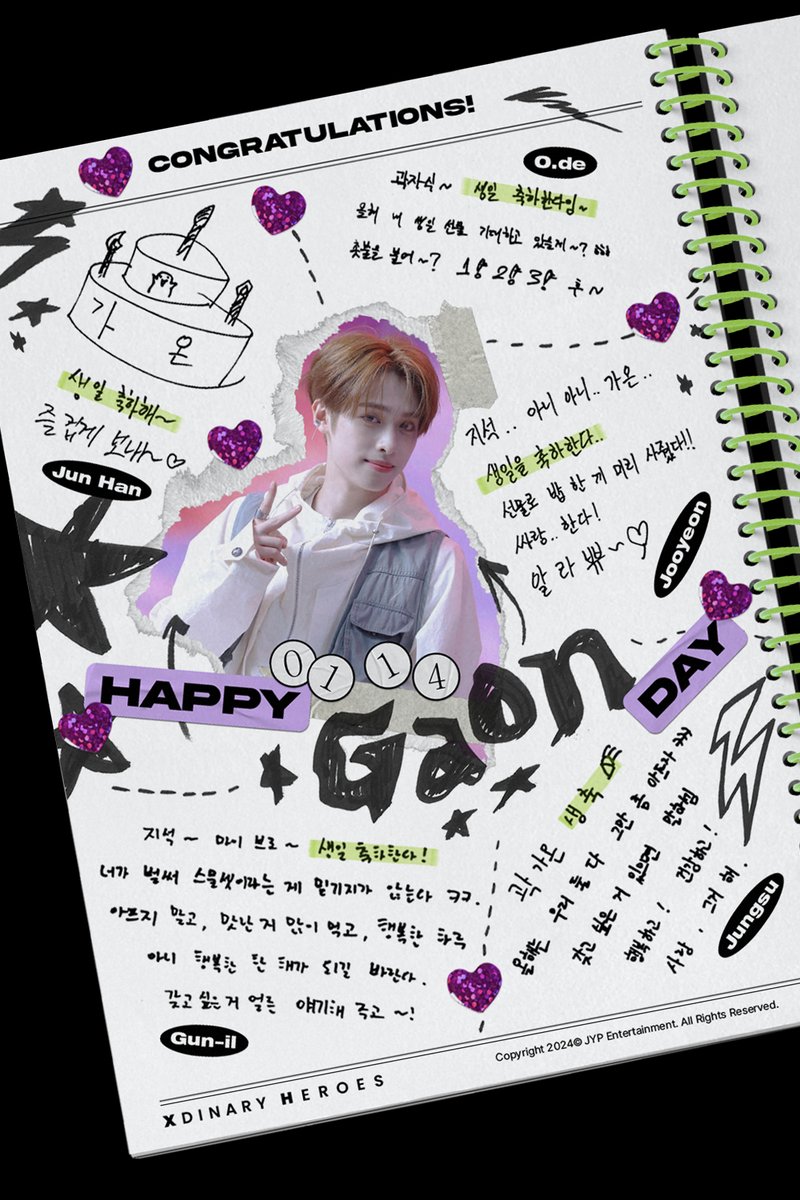 CONGRATULATIONS!
O.de
곽지석~ 생일 축하한다잉~
올해 내 생일 선물 기대하고 있을게~?
촛불을 불어~? 1장 2장 3장 후~
가 온
생일 축하해~
즐겁게 보내~♡
Jun Han
지석.. 아니 아니.. 가온..
생일을 축하한다..
선물로 밥 한 끼 미리 사줬다!!
싸랑.. 한다!
알 라 쀼~♡
Jooyeon
01 14
HAPPY
Gaon
DAY
지석~ 마이 브로~ 생일 축하한다!
너가 벌써 스물셋이라는 게 믿기지가 않는다 ㅋㅋ.
아프지 말고, 맛난 거 많이 먹고, 행복한 하루
아니 행복한 한 해가 되길 바란다.
갖고 싶은 거 얼른 얘기해 주고~!
Gun-il
곽가온 생축
올해는 우리 둘 다 그만 좀 아프자 ㅋㅋ
갖고 싶은 거 있으면 말하렴
행복하고! 건강하고!
사랑. 그거 해.
Jungsu
Copyright 2024© JYP Entertainment. All Rights Reserved.
XDINARY HEROES